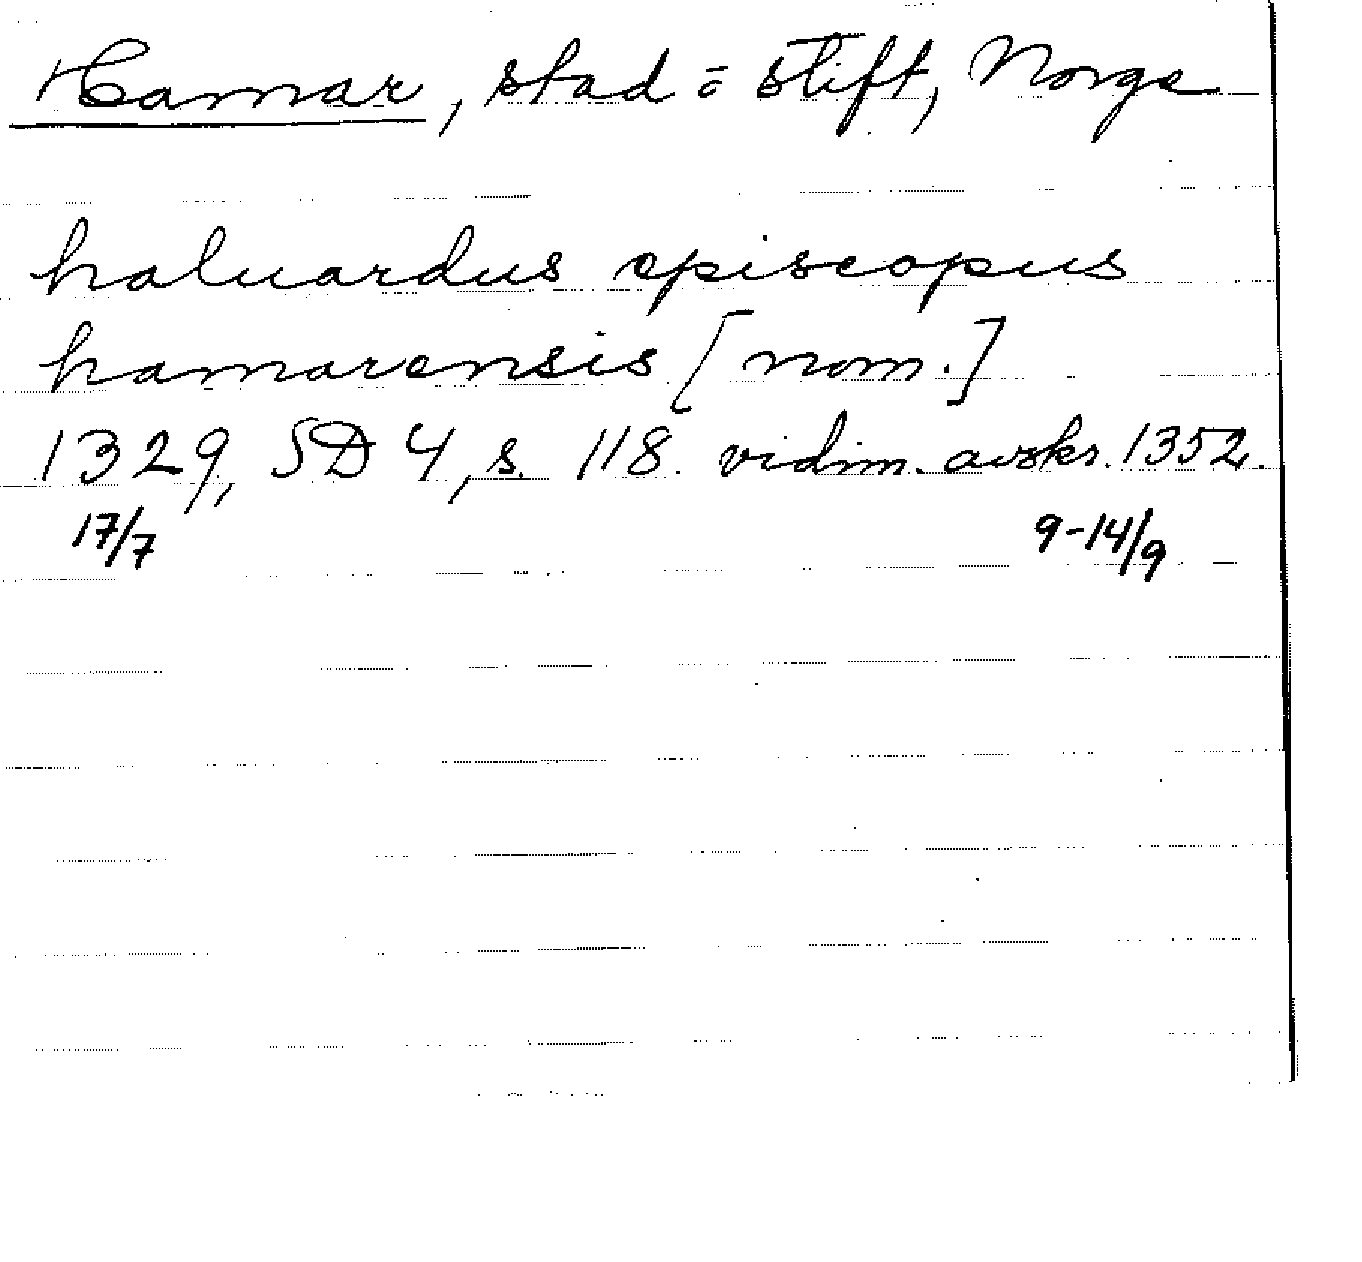 Hamar, stad o stift, Norge
haluardus episcopus
hamarensis [nom.]
1329, SD 4, s. 118. vidim. avskr. 1352.
17/7 9-14/9